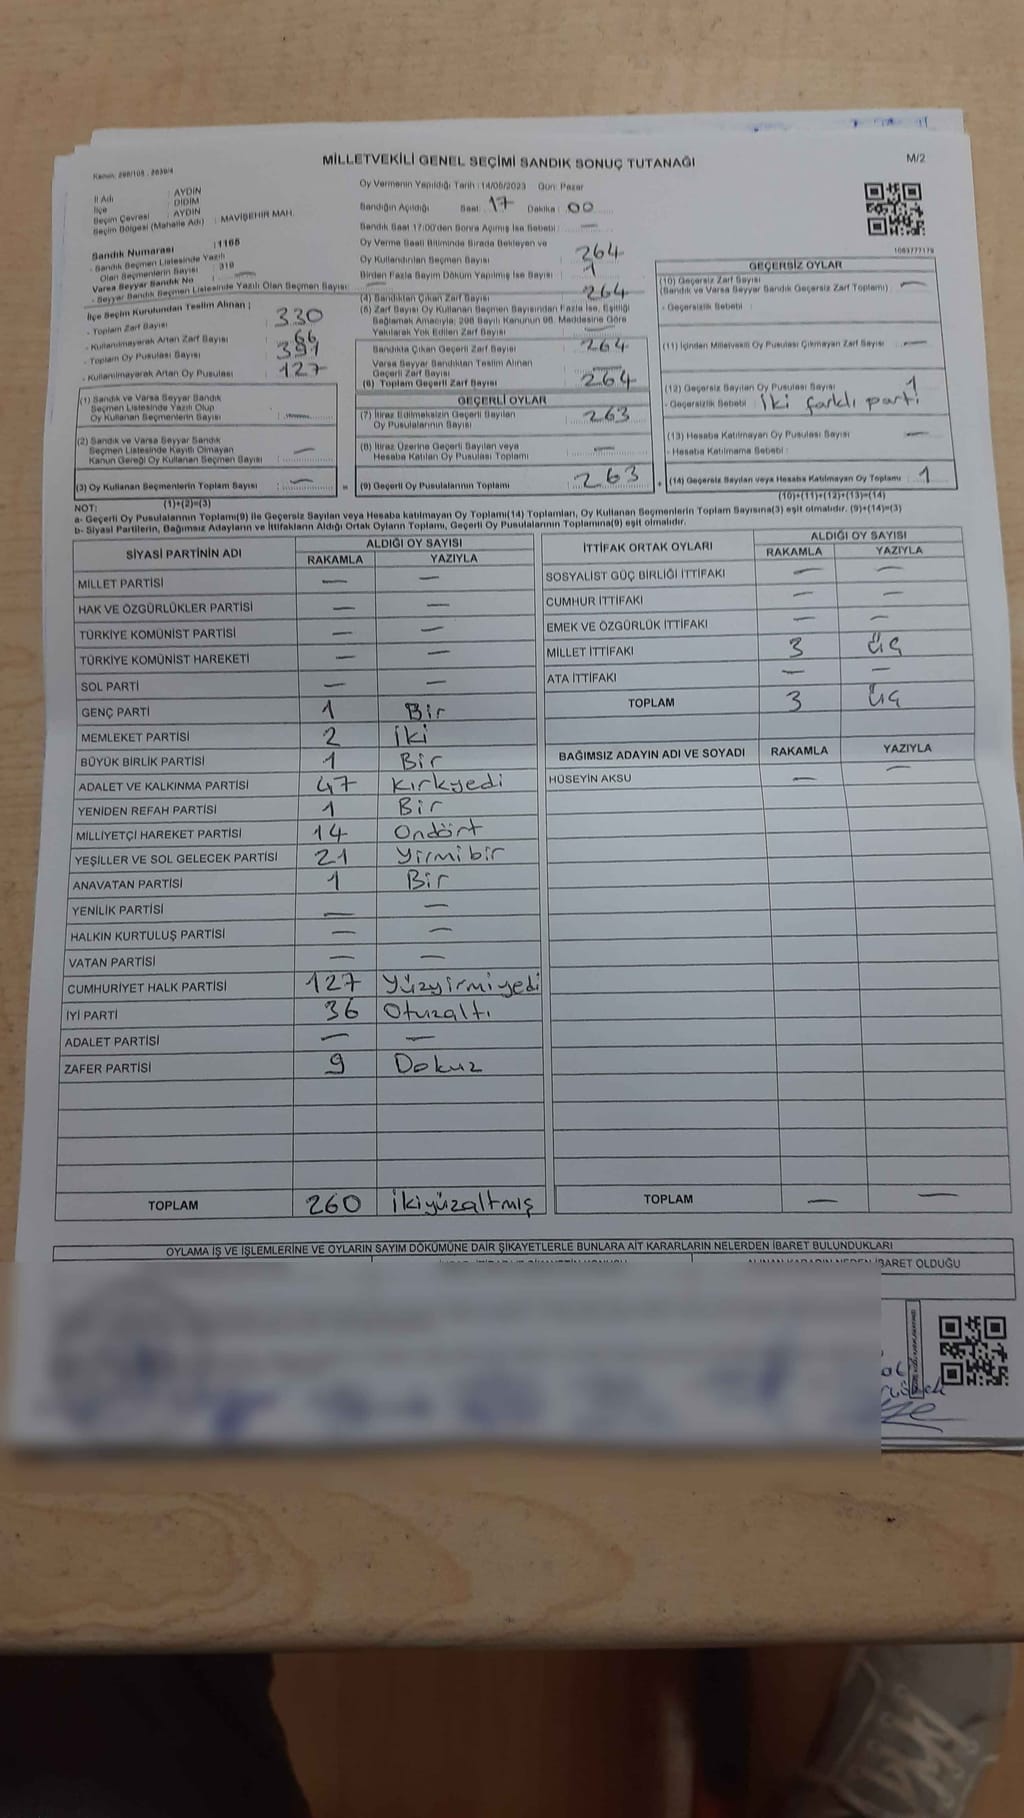 MİLLETVEKİLİ GENEL SEÇİMİ SANDIK SONUÇ TUTANAĞI
M/2
İl Adı : AYDIN
İlçe : DİDİM
Seçim Çevresi : AYDIN
Seçim Bölgesi (Mahalle Adı) : MAVİŞEHİR MAH.
Sandık Numarası : 1165
- Sandık Seçmen Listesinde Yazılı
Olan Seçmenlerin Sayısı : 319
Varsa Seyyar Sandık No : —
- Seyyar Sandık Seçmen Listesinde Yazılı Olan Seçmen Sayısı: —
İlçe Seçim Kurulundan Teslim Alınan ;
- Toplam Zarf Sayısı : 330
- Kullanılmayarak Artan Zarf Sayısı : 66
- Toplam Oy Pusulası Sayısı : 391
- Kullanılmayarak Artan Oy Pusulası : 127
(1) Sandık ve Varsa Seyyar Sandık
Seçmen Listesinde Yazılı Olup
Oy Kullanan Seçmenlerin Sayısı : —
(2) Sandık ve Varsa Seyyar Sandık
Seçmen Listesinde Kayıtlı Olmayan
Kanun Gereği Oy Kullanan Seçmen Sayısı : —
(3) Oy Kullanan Seçmenlerin Toplam Sayısı : —
(1)+(2)=(3)
Oy Vermenin Yapıldığı Tarih : 14/05/2023 Gün: Pazar
Sandığın Açıldığı Saat : 17 Dakika : 00
Sandık Saat 17:00'den Sonra Açılmış İse Sebebi : —
Oy Verme Saati Bitiminde Sırada Bekleyen ve
Oy Kullandırılan Seçmen Sayısı : 264
Birden Fazla Sayım Döküm Yapılmış İse Sayısı : 1
(4) Sandıktan Çıkan Zarf Sayısı : 264
(5) Zarf Sayısı Oy Kullanan Seçmen Sayısından Fazla İse, Eşitliği
Sağlamak Amacıyla; 298 Sayılı Kanunun 98. Maddesine Göre
Yakılarak Yok Edilen Zarf Sayısı : —
Sandıkta Çıkan Geçerli Zarf Sayısı : 264
Varsa Seyyar Sandıktan Teslim Alınan
Geçerli Zarf Sayısı : —
(6) Toplam Geçerli Zarf Sayısı : 264
GEÇERLİ OYLAR
(7) İtiraz Edilmeksizin Geçerli Sayılan
Oy Pusulalarının Sayısı : 263
(8) İtiraz Üzerine Geçerli Sayılan veya
Hesaba Katılan Oy Pusulası Toplamı : —
(9) Geçerli Oy Pusulalarının Toplamı : 263
1083777179
GEÇERSİZ OYLAR
(10) Geçersiz Zarf Sayısı
(Sandık ve Varsa Seyyar Sandık Geçersiz Zarf Toplamı) : —
- Geçersizlik Sebebi :
(11) İçinden Milletvekili Oy Pusulası Çıkmayan Zarf Sayısı : —
(12) Geçersiz Sayılan Oy Pusulası Sayısı : 1
- Geçersizlik Sebebi : iki farklı parti
(13) Hesaba Katılmayan Oy Pusulası Sayısı : —
- Hesaba Katılmama Sebebi :
(14) Geçersiz Sayılan veya Hesaba Katılmayan Oy Toplamı : 1
(10)+(11)+(12)+(13)=(14)
NOT:
a- Geçerli Oy Pusulalarının Toplamı(9) ile Geçersiz Sayılan veya Hesaba katılmayan Oy Toplamı(14) Toplamları, Oy Kullanan Seçmenlerin Toplam Sayısına(3) eşit olmalıdır. (9)+(14)=(3)
b- Siyasi Partilerin, Bağımsız Adayların ve İttifakların Aldığı Ortak Oyların Toplamı, Geçerli Oy Pusulalarının Toplamına(9) eşit olmalıdır.
SİYASİ PARTİNİN ADI ALDIĞI OY SAYISI
RAKAMLA YAZIYLA
MİLLET PARTİSİ — —
HAK VE ÖZGÜRLÜKLER PARTİSİ — —
TÜRKİYE KOMÜNİST PARTİSİ — —
TÜRKİYE KOMÜNİST HAREKETİ — —
SOL PARTİ — —
GENÇ PARTİ 1 Bir
MEMLEKET PARTİSİ 2 İki
BÜYÜK BİRLİK PARTİSİ 1 Bir
ADALET VE KALKINMA PARTİSİ 47 Kırkyedi
YENİDEN REFAH PARTİSİ 1 Bir
MİLLİYETÇİ HAREKET PARTİSİ 14 Ondört
YEŞİLLER VE SOL GELECEK PARTİSİ 21 Yirmibir
ANAVATAN PARTİSİ 1 Bir
YENİLİK PARTİSİ — —
HALKIN KURTULUŞ PARTİSİ — —
VATAN PARTİSİ — —
CUMHURİYET HALK PARTİSİ 127 Yüzyirmiyedi
İYİ PARTİ 36 Otuzaltı
ADALET PARTİSİ — —
ZAFER PARTİSİ 9 Dokuz
TOPLAM 260 İkiyüzaltmış
İTTİFAK ORTAK OYLARI ALDIĞI OY SAYISI
RAKAMLA YAZIYLA
SOSYALİST GÜÇ BİRLİĞİ İTTİFAKI — —
CUMHUR İTTİFAKI — —
EMEK VE ÖZGÜRLÜK İTTİFAKI — —
MİLLET İTTİFAKI 3 üç
ATA İTTİFAKI — —
TOPLAM 3 üç
BAĞIMSIZ ADAYIN ADI VE SOYADI RAKAMLA YAZIYLA
HÜSEYİN AKSU — —
TOPLAM — —
OYLAMA İŞ VE İŞLEMLERİNE VE OYLARIN SAYIM DÖKÜMÜNE DAİR ŞİKAYETLERLE BUNLARA AİT KARARLARIN NELERDEN İBARET BULUNDUKLARI
ALINAN KARARIN NEDEN İBARET OLDUĞU